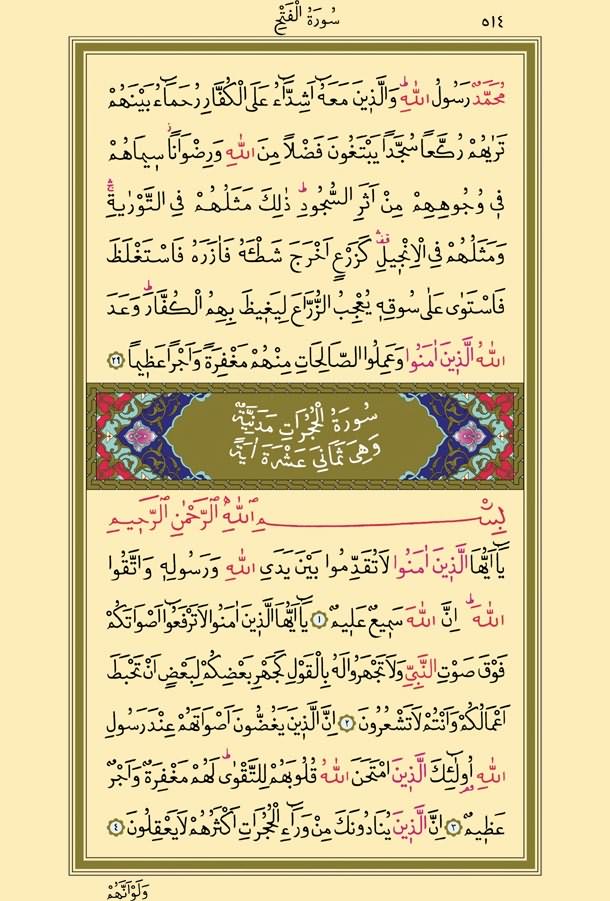 سُورَةُ الْفَتْحِ
٥١٤
مُحَمَّدٌ رَسُولُ اللّٰهِۜ وَالَّذ۪ينَ مَعَهُٓ اَشِدَّٓاءُ عَلَى الْكُفَّارِ رُحَمَٓاءُ بَيْنَهُمْ
تَرٰيهُمْ رُكَّعاً سُجَّداً يَبْتَغُونَ فَضْلاً مِنَ اللّٰهِ وَرِضْوَاناًۘ س۪يمَاهُمْ
ف۪ي وُجُوهِهِمْ مِنْ اَثَرِ السُّجُودِۜ ذٰلِكَ مَثَلُهُمْ فِي التَّوْرٰيةِۚۛ
وَمَثَلُهُمْ فِي الْاِنْج۪يلِ۠ۛ كَزَرْعٍ اَخْرَجَ شَطْـَٔهُ فَاٰزَرَهُ فَاسْتَغْلَظَ
فَاسْتَوٰى عَلٰى سُوقِه۪ يُعْجِبُ الزُّرَّاعَ لِيَغ۪يظَ بِهِمُ الْكُفَّارَۜ وَعَدَ
اللّٰهُ الَّذ۪ينَ اٰمَنُوا وَعَمِلُوا الصَّالِحَاتِ مِنْهُمْ مَغْفِرَةً وَاَجْراً عَظ۪يماً ﴿٢٩﴾
سُورَةُ الْحُجُرَاتِ مَدَنِيَّةٌ
وَهِيَ ثَمَانِيَ عَشْرَةَ اٰيَةً
بِسْمِ اللّٰهِ الرَّحْمٰنِ الرَّح۪يمِ
يَٓا اَيُّهَا الَّذ۪ينَ اٰمَنُوا لَا تُقَدِّمُوا بَيْنَ يَدَيِ اللّٰهِ وَرَسُولِه۪ وَاتَّقُوا
اللّٰهَۜ اِنَّ اللّٰهَ سَم۪يعٌ عَل۪يمٌ ﴿١﴾ يَٓا اَيُّهَا الَّذ۪ينَ اٰمَنُوا لَا تَرْفَعُٓوا اَصْوَاتَكُمْ
فَوْقَ صَوْتِ النَّبِيِّ وَلَا تَجْهَرُوا لَهُ بِالْقَوْلِ كَجَهْرِ بَعْضِكُمْ لِبَعْضٍ اَنْ تَحْبَطَ
اَعْمَالُكُمْ وَاَنْتُمْ لَا تَشْعُرُونَ ﴿٢﴾ اِنَّ الَّذ۪ينَ يَغُضُّونَ اَصْوَاتَهُمْ عِنْدَ رَسُولِ
اللّٰهِ اُو۬لٰٓئِكَ الَّذ۪ينَ امْتَحَنَ اللّٰهُ قُلُوبَهُمْ لِلتَّقْوٰىۜ لَهُمْ مَغْفِرَةٌ وَاَجْرٌ
عَظ۪يمٌ ﴿٣﴾ اِنَّ الَّذ۪ينَ يُنَادُونَكَ مِنْ وَرَٓاءِ الْحُجُرَاتِ اَكْثَرُهُمْ لَا يَعْقِلُونَ ﴿٤﴾
وَلَوْ اَنَّهُمْ